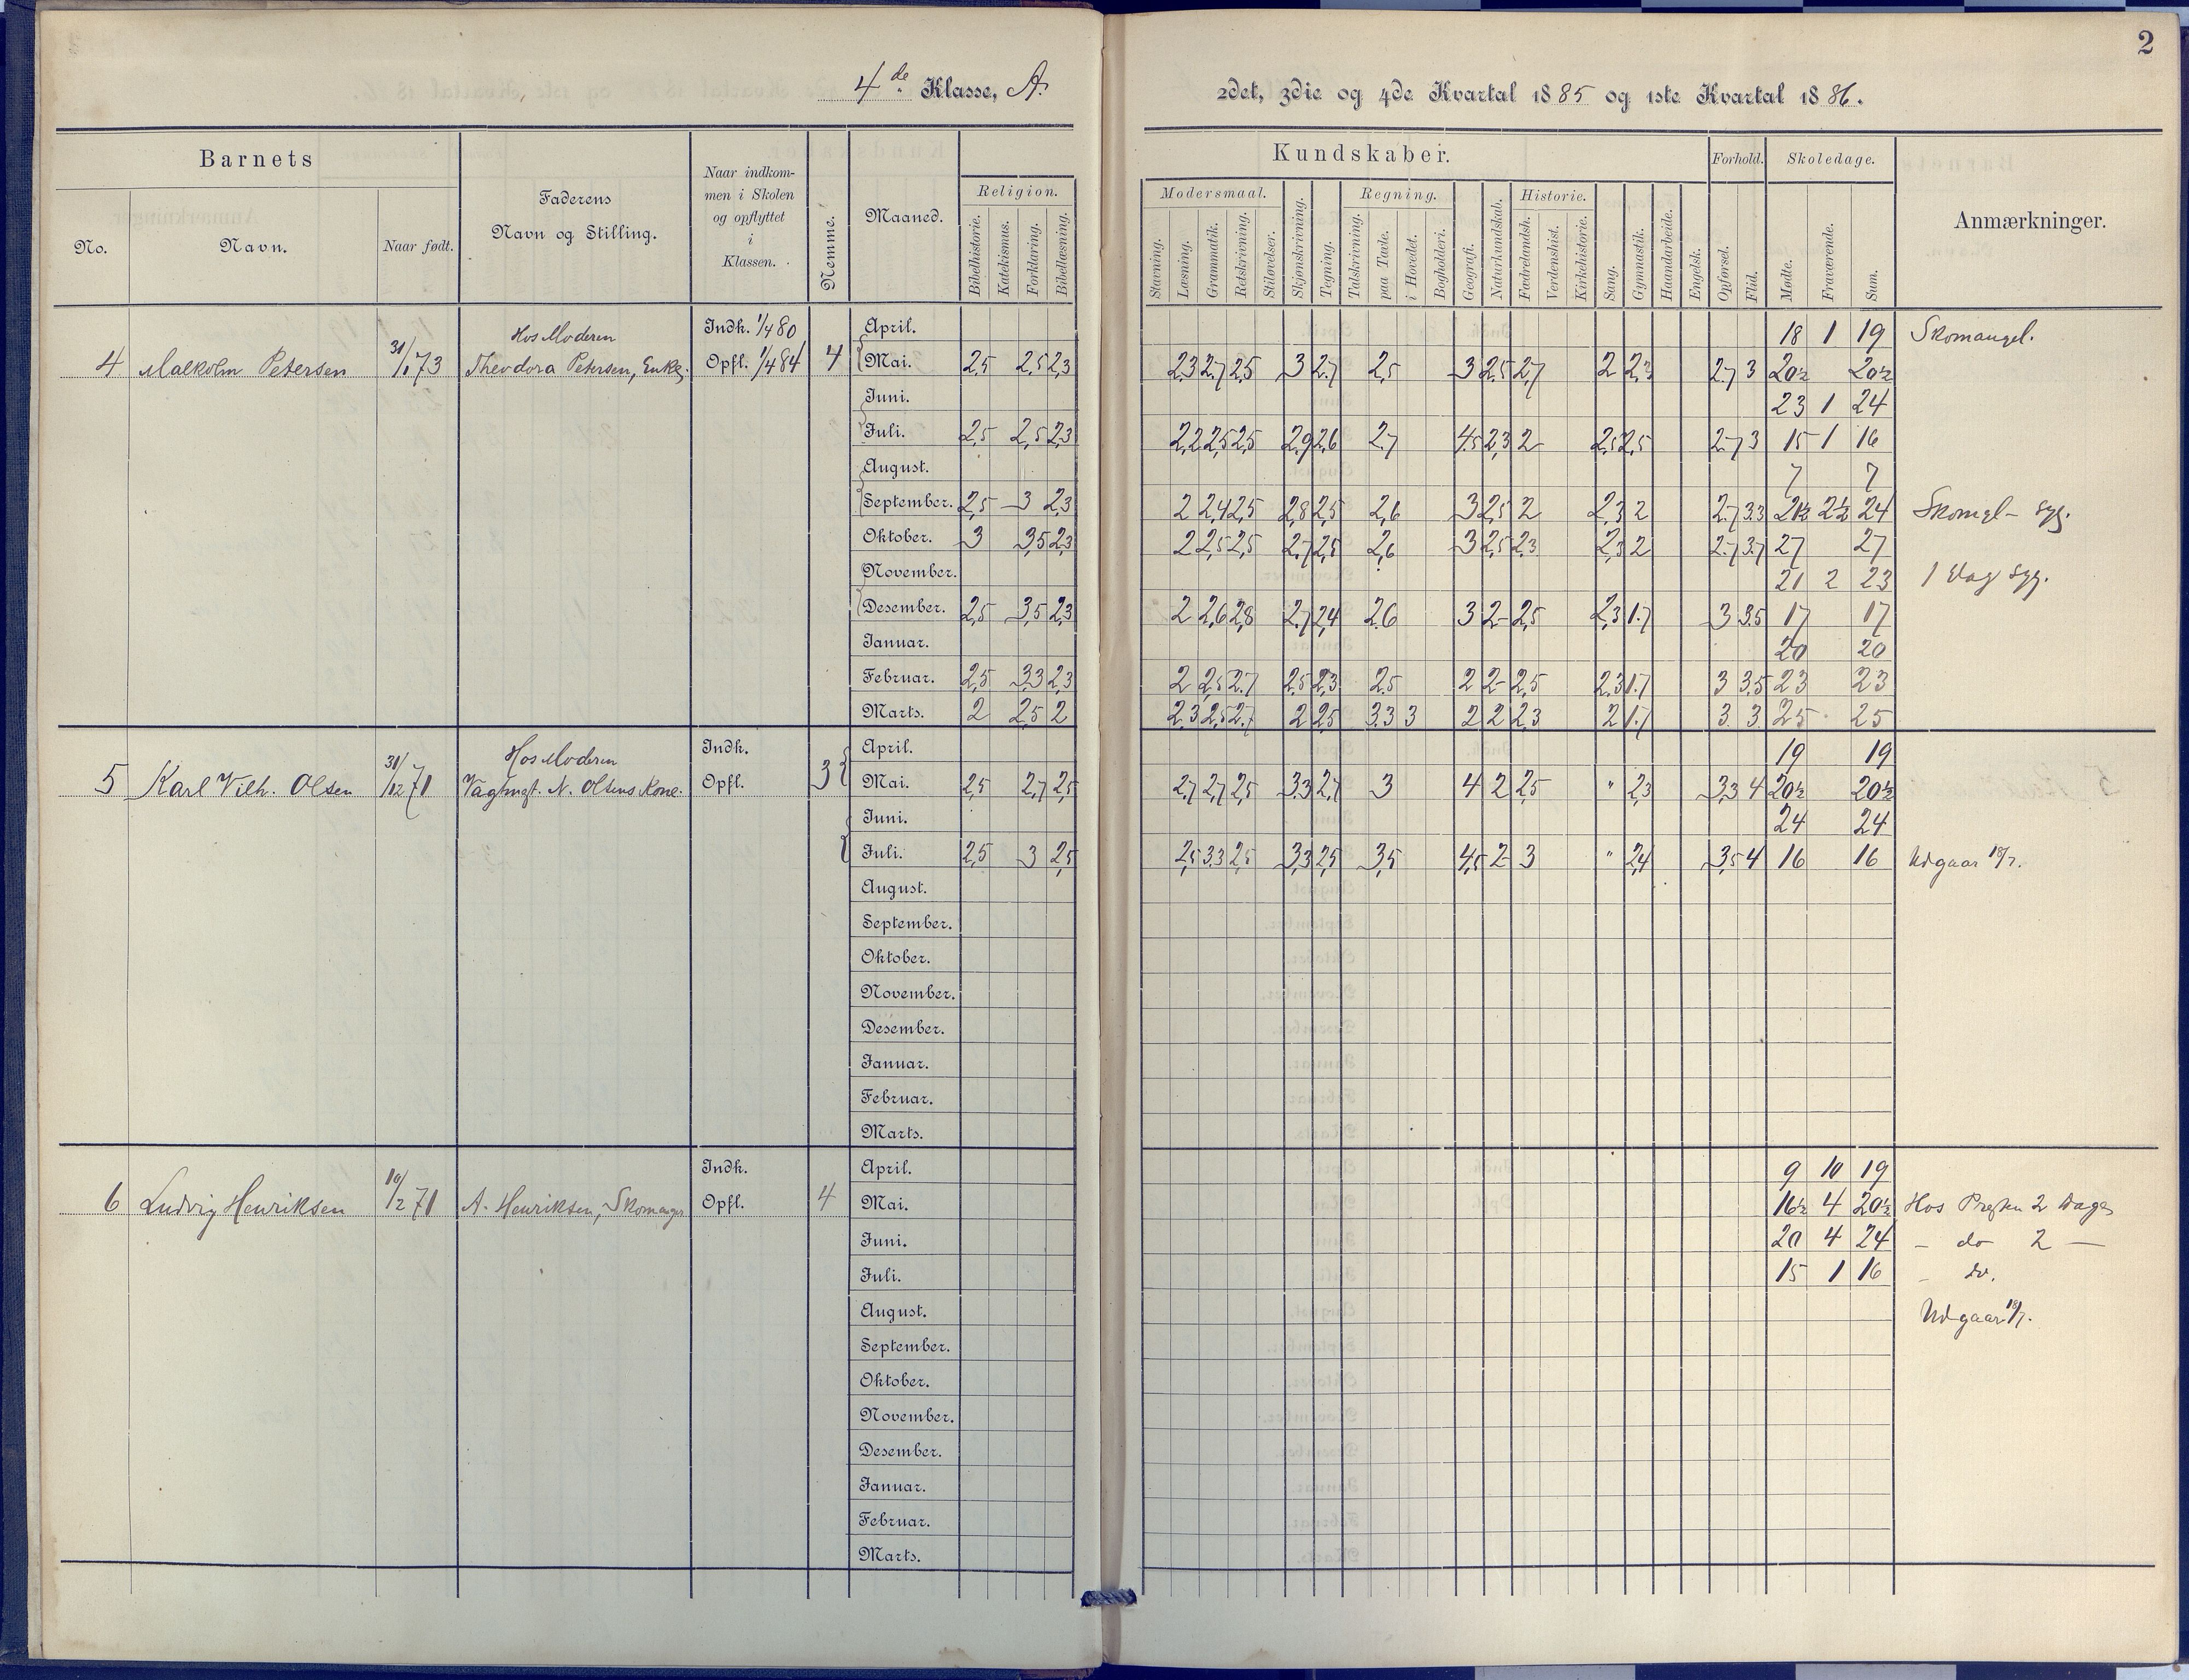 2
4de Klasse, A.
2det, 3die og 4de Kvartal 1885 og 1ste Kvartal 1886.
Barnets
No.
Navn.
Naar født.
Faderens
Navn og Stilling.
Naar indkom-
men i Skolen
og opflyttet
i
Klassen.
Nemme.
Maaned.
Religion.
Bibelhistorie.
Katekismus.
Forklaring.
Bibellæsning.
Kundskaber.
Modersmaal.
Stavning.
Læsning.
Grammatik.
Retskrivning.
Stiløvelser.
Skjønskrivning.
Tegning.
Regning.
Talskrivning.
paa Tavle.
i Hovedet.
Bogholderi.
Geografi.
Naturkundskab.
Historie.
Fædrelandsh.
Verdenshist.
Kirkehistorie.
Sang.
Gymnastik.
Haandarbeide.
Engelsk.
Forhold.
Opførsel.
Flid.
Skoledage.
Mødte.
Fraværende.
Sum.
Anmærkninger.
4 Malkolm Petersen 31/1 73 Hos Moderen
Theodora Petersen, Enke.
Indk. 1/4 80
Opfl. 1/4 84 4
April. 18 1 19 Skomangel.
Mai. 2,5 2,5 2,3 2,3 2,7 2,5 3 2,7 2,5 3 2,5 2,7 2 2,3 2,7 3 20½ 20½
Juni. 23 1 24
Juli. 2,5 2,5 2,3 2,2 2,5 2,5 2,9 2,6 2,7 4,5 2,3 2 2,5 2,5 2,7 3 15 1 16
August. 7 7
September. 2,5 3 2,3 2 2,4 2,5 2,8 2,5 2,6 3 2,5 2 2,3 2 2,7 3,3 21½ 2½ 24 Skomgl - syg.
Oktober. 3 3,5 2,3 2 2,5 2,5 2,7 2,5 2,6 3 2,5 2,3 2,3 2 2,7 3,7 27 27
November. 21 2 23 1 Dag syg.
Desember. 2,5 3,5 2,3 2 2,6 2,8 2,7 2,4 2,6 3 2 2,5 2,3 1,7 3 3,5 17 17
Januar. 20 20
Februar. 2,5 3,3 2,3 2 2,5 2,7 2,5 2,3 2,5 2 2 2,5 2,3 1,7 3 3,5 23 23
Marts. 2 2,5 2 2,3 2,5 2,7 2 2,5 3,3 3 2 2 2,3 2 1,7 3 3 25 25
5 Karl Vilh. Olsen 31/12 71 Hos Moderen
Vagtmest. N. Olsens Kone.
Indk.
Opfl. 3
April. 19 19
Mai. 2,5 2,7 2,5 2,7 2,7 2,5 3,3 2,7 3 4 2 2,5 " 2,3 3,3 4 20½ 20½
Juni. 24 24
Juli. 2,5 3 2,5 2,5 3,3 2,5 3,3 2,5 3,5 4,5 2 3 " 2,4 3,5 4 16 16 Udgaar 18/7.
August.
September.
Oktober.
November.
Desember.
Januar.
Februar.
Marts.
6 Ludvig Henriksen 10/2 71 A. Henriksen, Skomager
Indk.
Opfl. 4
April. 9 10 19
Mai. 16½ 4 20½ Hos Presten 2 Dage
Juni. 20 4 24 - do 2 -
Juli. 15 1 16 - do.
August. Udgaar 18/7.
September.
Oktober.
November.
Desember.
Januar.
Februar.
Marts.